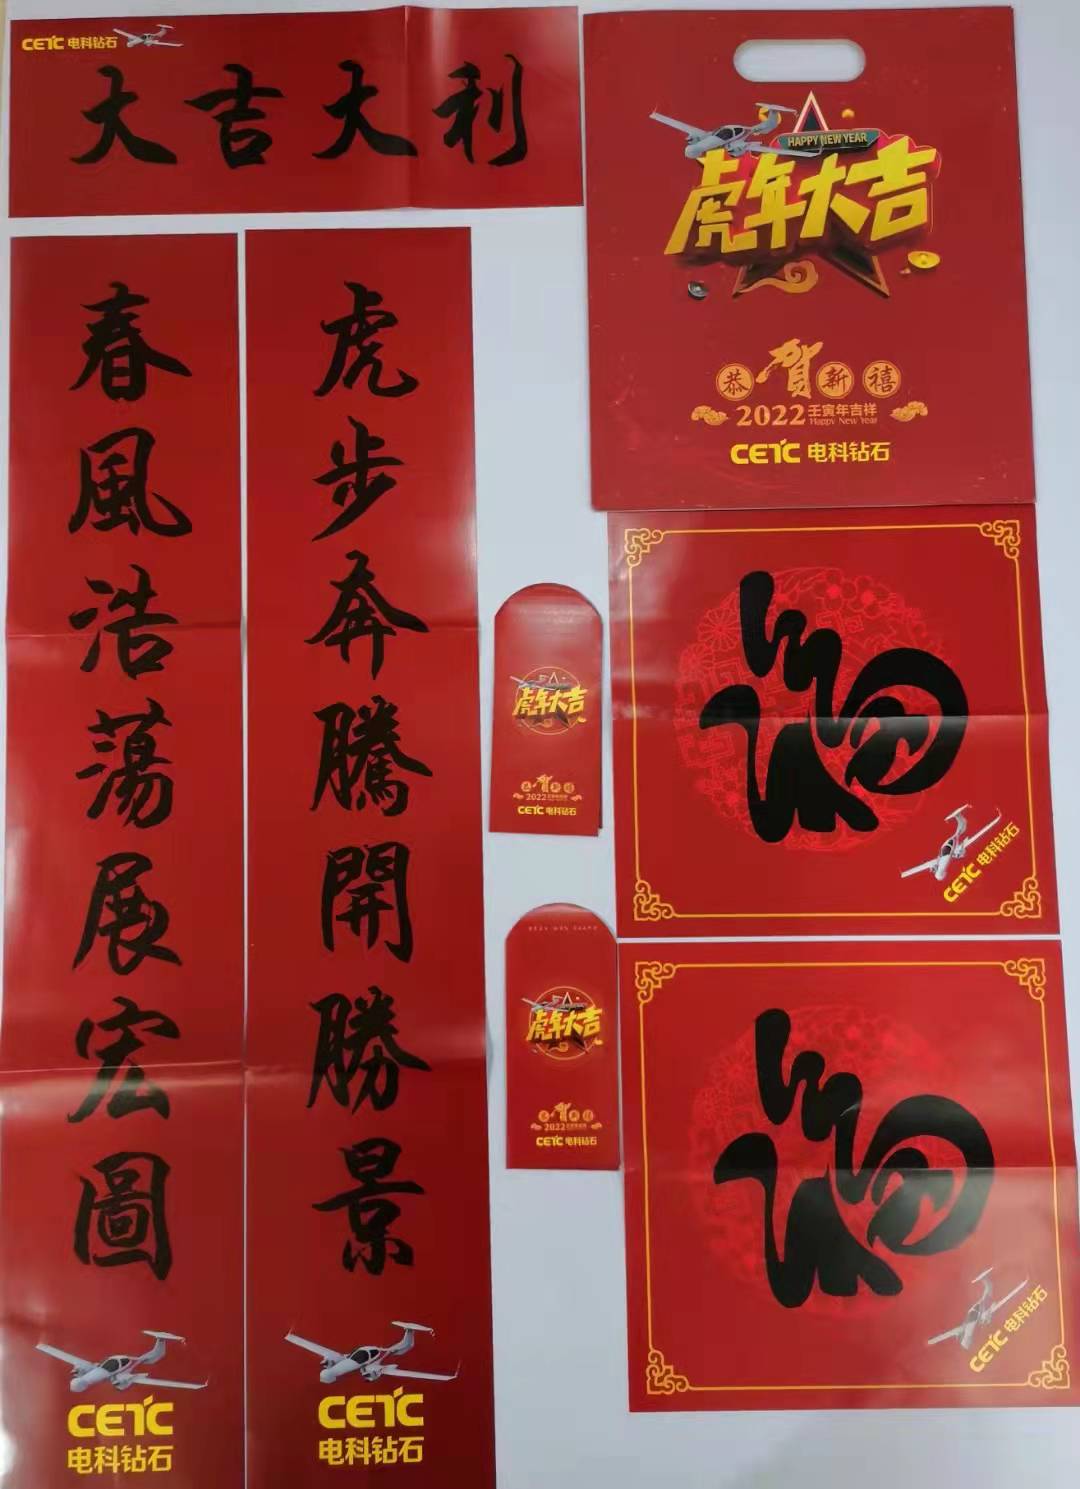 CETC 电科钻石
大吉大利
春風浩蕩展宏圖
CETC
电科钻石
虎步奔騰開勝景
CETC
电科钻石
HAPPY NEW YEAR
虎年大吉
恭贺新禧
2022 壬寅年吉祥
Happy New Year
CETC 电科钻石
虎年大吉
恭贺新禧
2022
CETC 电科钻石
虎年大吉
恭贺新禧
2022
CETC 电科钻石
福
CETC 电科钻石
福
CETC 电科钻石